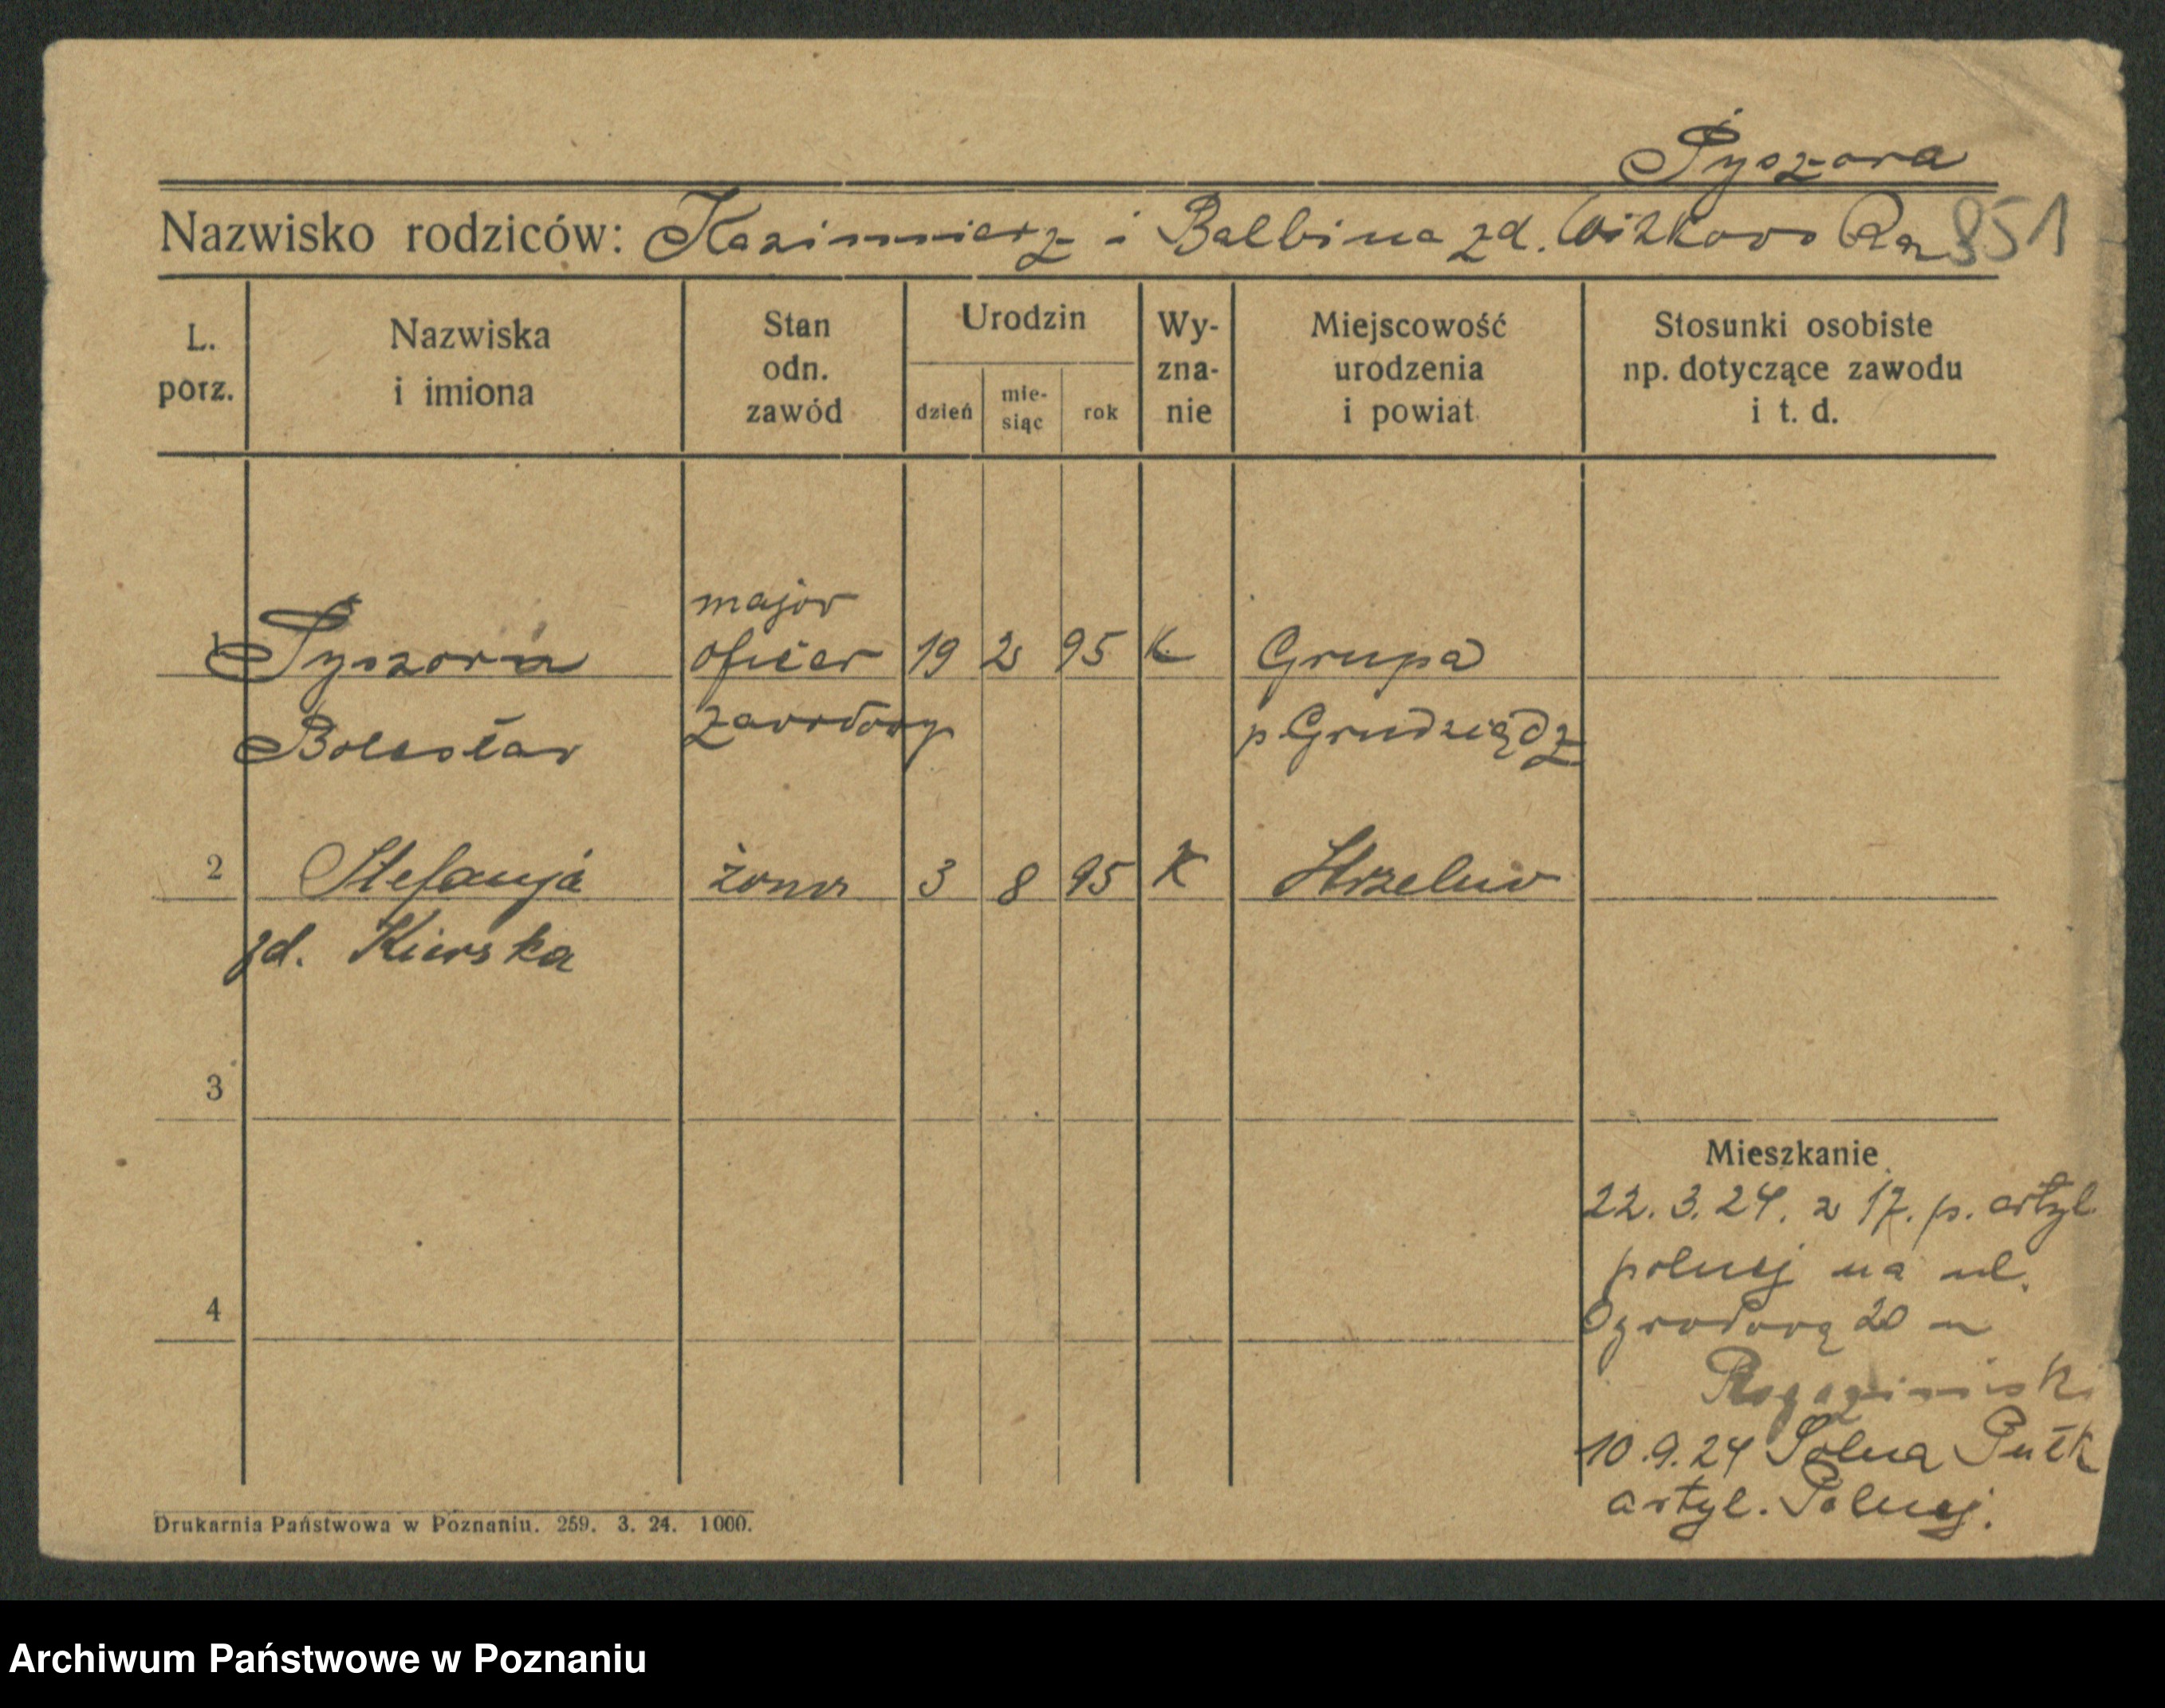 Pyszora
Nazwisko rodziców: Kazimierz i Balbina zd. 851
L. porz.
Nazwiska i imiona
Stan odn. zawód
Urodzin
dzień
mie-siąc
rok
Wy-zna-nie
Miejscowość urodzenia i powiat
Stosunki osobiste np. dotyczące zawodu i t. d.
major
1 Pyszora oficer 19 2 95 K Grupa
Bolesław zawodowy p. Grudziądz
2 Stefanja żona 3 8 95 K
zd. Kierska
3
Mieszkanie
22. 3. 24. z 17. p. artyl.
polnej na ul.
4
Ogrodową 20 m
10. 9. 24 Solna Pułk
artyl. Polnej.
Drukarnia Państwowa w Poznaniu. 259. 3. 24. 1000.
Archiwum Państwowe w Poznaniu